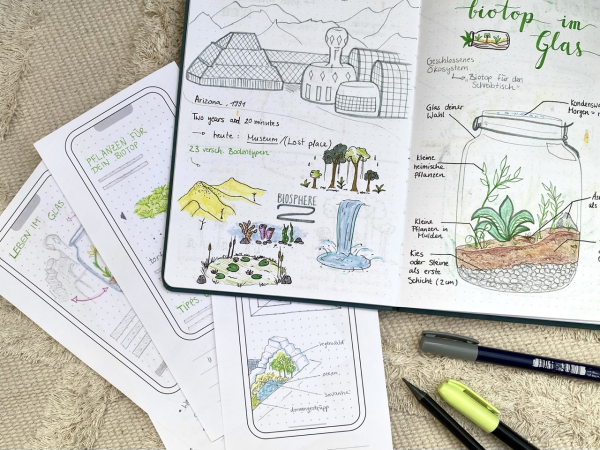 Arizona, 1991
Two years and 20 minutes
→ heute: Museum / (Lost place)
23 versch. Bodentypen
BIOSPHERE
biotop im
Glas
Geschlossenes
Ökosystem
↳ Biotop für das
Schreibtisch
Glas deiner
Wahl
Kleine
heimische
Pflanzen
Kleine
Pflanzen in
Mulden
Kies
oder Steine
als erste
Schicht (2cm)
Morgen =
als
PFLANZEN FÜR
DEIN BIOTOP
TIPPS
LEBEN IM GLAS
regenwald
ozean
savanne